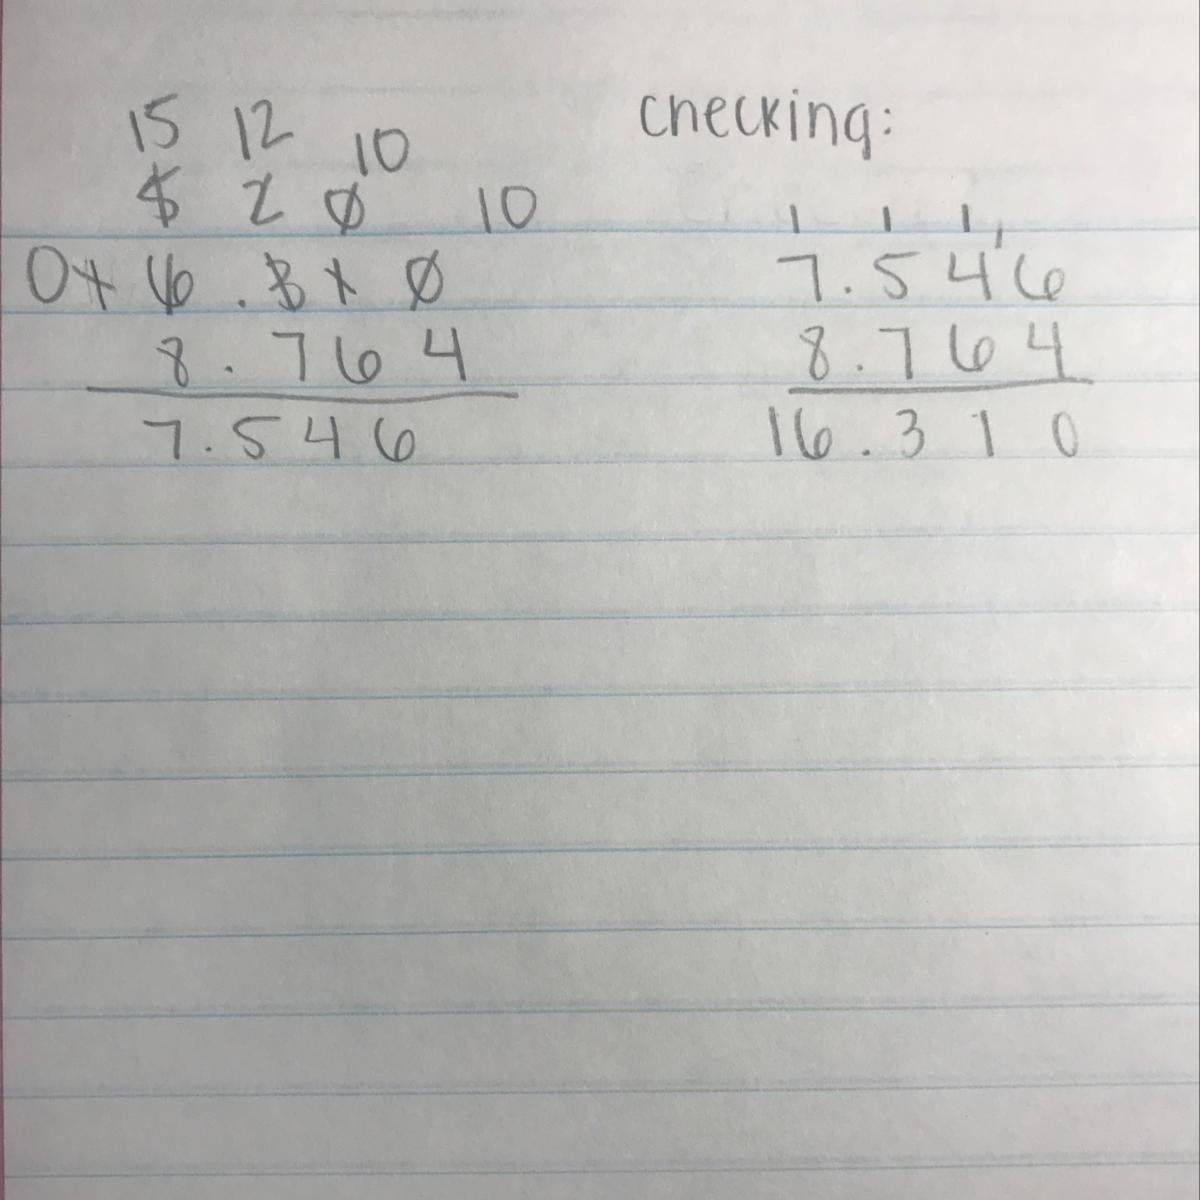 15 12 10
5 2 0 10
01 6 . 3 1 0
8 . 7 6 4
7 . 5 4 6
checking:
1 1 1
7 . 5 4 6
8 . 7 6 4
16 . 3 1 0